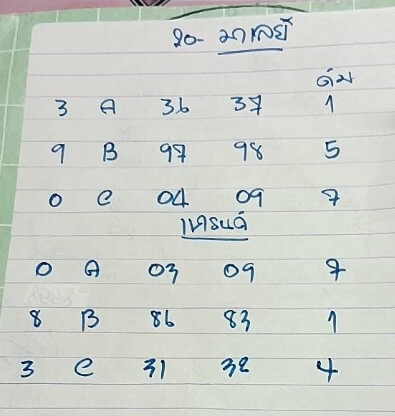 20- มาเลย์
ดับ
3 A 36 37 1
9 B 97 98 5
0 C 04 09 7
เทรนด์
0 A 03 09 7
8 B 86 83 1
3 C 31 32 4